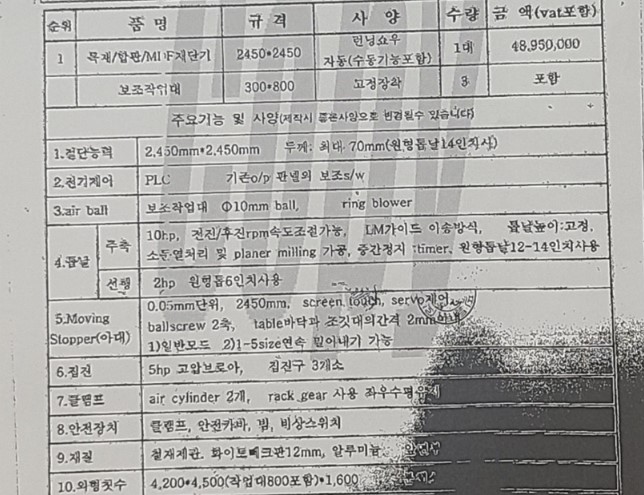 순위 품 명 규 격 사 양 수량 금 액(vat포함)
1 목재/합판/MDF재단기 2450*2450 런닝쇼우 자동(수동기능포함) 1대 48,950,000
보조작업대 300*800 고정장착 포함
주요기능 및 사양(제작시 좋은사양으로 변경될수 있습니다)
1.절단능력 2,450mm*2,450mm 두께: 최대 70mm(원형톱날14인치시)
2.전기제어 PLC 기존o/p 판넬의 보조s/w
3.air ball 보조작업대 Φ10mm ball, ring blower
4.톱날 주축 10hp, 전진/후진rpm속도조절가능, LM가이드 이송방식, 톱날높이:고정,
소둔열처리 및 planer milling 가공, 중간정지 :timer, 원형톱날12-14인치사용
선행 2hp 원형톱6인치사용
5.Moving Stopper(아대) 0.05mm단위, 2450mm, screen touch, servo제어
ballscrew 2축, table바닥과 조깃대의간격 2mm이내
1)일반모드 2)1-5size연속 밀어내기 가능
6.집진 5hp 고압브로아, 집진구 3개소
7.클램프 air cylinder 2개, rack gear 사용 좌우수평유지
8.안전장치 클램프, 안전카바, 빔, 비상스위치
9.재질 철재제관, 화이트베크판12mm, 알루미늄,
10.외형칫수 4,200*4,500(작업대800포함)*1,600